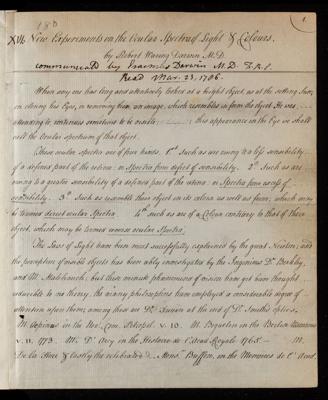 180
1.
XVI. New Experiments on the Ocular Spectra of Light & Colours.
by Robert Waring Darwin M.D.
communicated by Erasmus Darwin M.D. F.R.S.
Read Mar. 23, 1786.
When any one has long and attentively looked at a bright object, as at the setting Sun,
on closing his Eyes, or removing them, an image, which resembles in form the object He was
attending to, continues sometime to be visible; this appearance in the Eye we shall
call the Ocular spectrum of that object.
These ocular spectra are of four kinds. 1st Such as are owing to a less sensibility
of a defined part of the retina: or Spectra from defect of sensibility. 2d Such as are
owing to a greater sensibility of a defined part of the retina: or Spectra from excess of
sensibility. 3d Such as resemble their object in its colour as well as form; which may
be termed direct ocular Spectra. 4th such as are of a Colour contrary to that of their
object, which may be termed reverse ocular Spectra.
The Laws of Light have been most successfully explained by the great Newton; and
the perception of visible objects has been ably investigated by the Ingenious Dr. Berkley,
and M. Malebranch; but these minute phenomena of vision have yet been thought
reducible to no theory, tho' many philosophers have employed a considerable degree of
attention upon them; among these are Dr. Jurin at the end of Dr. Smith's Optics,
M. Aepinus in the Nov. Com. Petropol. v. 10. M. Beguelin in the Berlin Memoires
v. 11. 1771. M. D'Arcy in the Histoire de l'Acad. Royale 1765. M.
De la Hire & lastly the celebrated Mons. Buffon, in the Memoires de l'Acad.